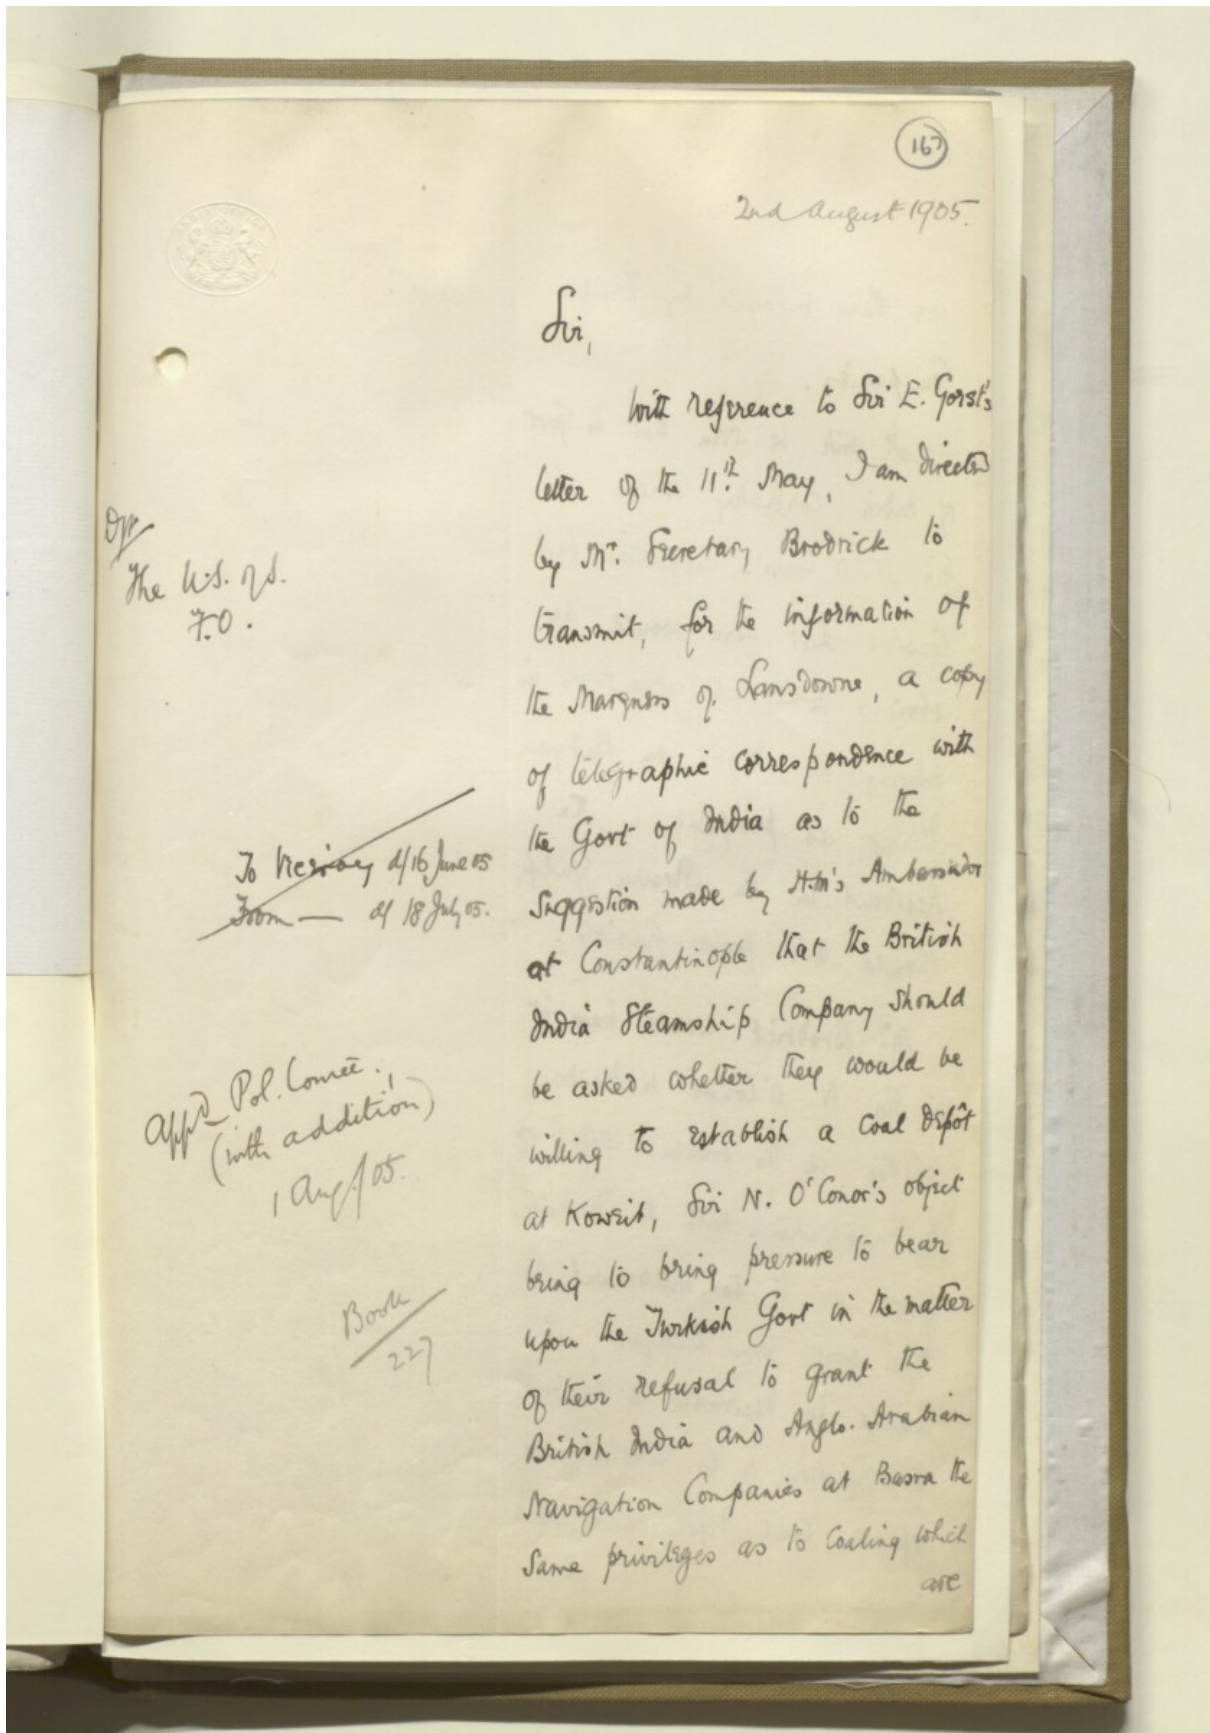 167
2nd August 1905.
Sir,
With reference to Sir E. Gorst's
letter of the 11th May, I am directed
by Mr. Secretary Brodrick to
transmit, for the information of
the Marquess of Lansdowne, a copy
of telegraphic correspondence with
the Govt of India as to the
suggestion made by H.M's Ambassador
at Constantinople that the British
India Steamship Company should
be asked whether they would be
willing to establish a coal depôt
at Koweit, Sir N. O'Conor's object
being to bring pressure to bear
upon the Turkish Govt in the matter
of their refusal to grant the
British India and Anglo-Arabian
Navigation Companies at Basra the
same privileges as to coaling which
are
Dft
The U.S. of S.
F.O.
To Viceroy d/16 June 05
From — d/ 18 July 05.
Appd Pol. Comtee.,
(with addition)
1 Aug./05.
Book
227